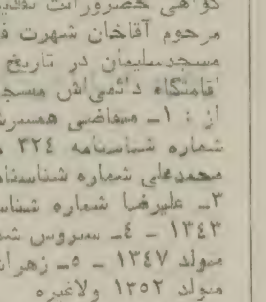 گواهی حصروراثت تقدیم
مرحوم آقاخان شهرت
مسجدسلیمان در تاریخ
اقامتگاه دائمی‌اش مسجد
از : ۱ـ همسرش
شماره شناسنامه ۳۲۴
محمدعلی شماره شناسنا
۳ـ علیرضا شماره شناس
۱۳۴۳ ـ ۴ـ سیروس ش
متولد ۱۳۴۷ ـ ۵ـ زهرا
متولد ۱۳۵۲ ولاغیره